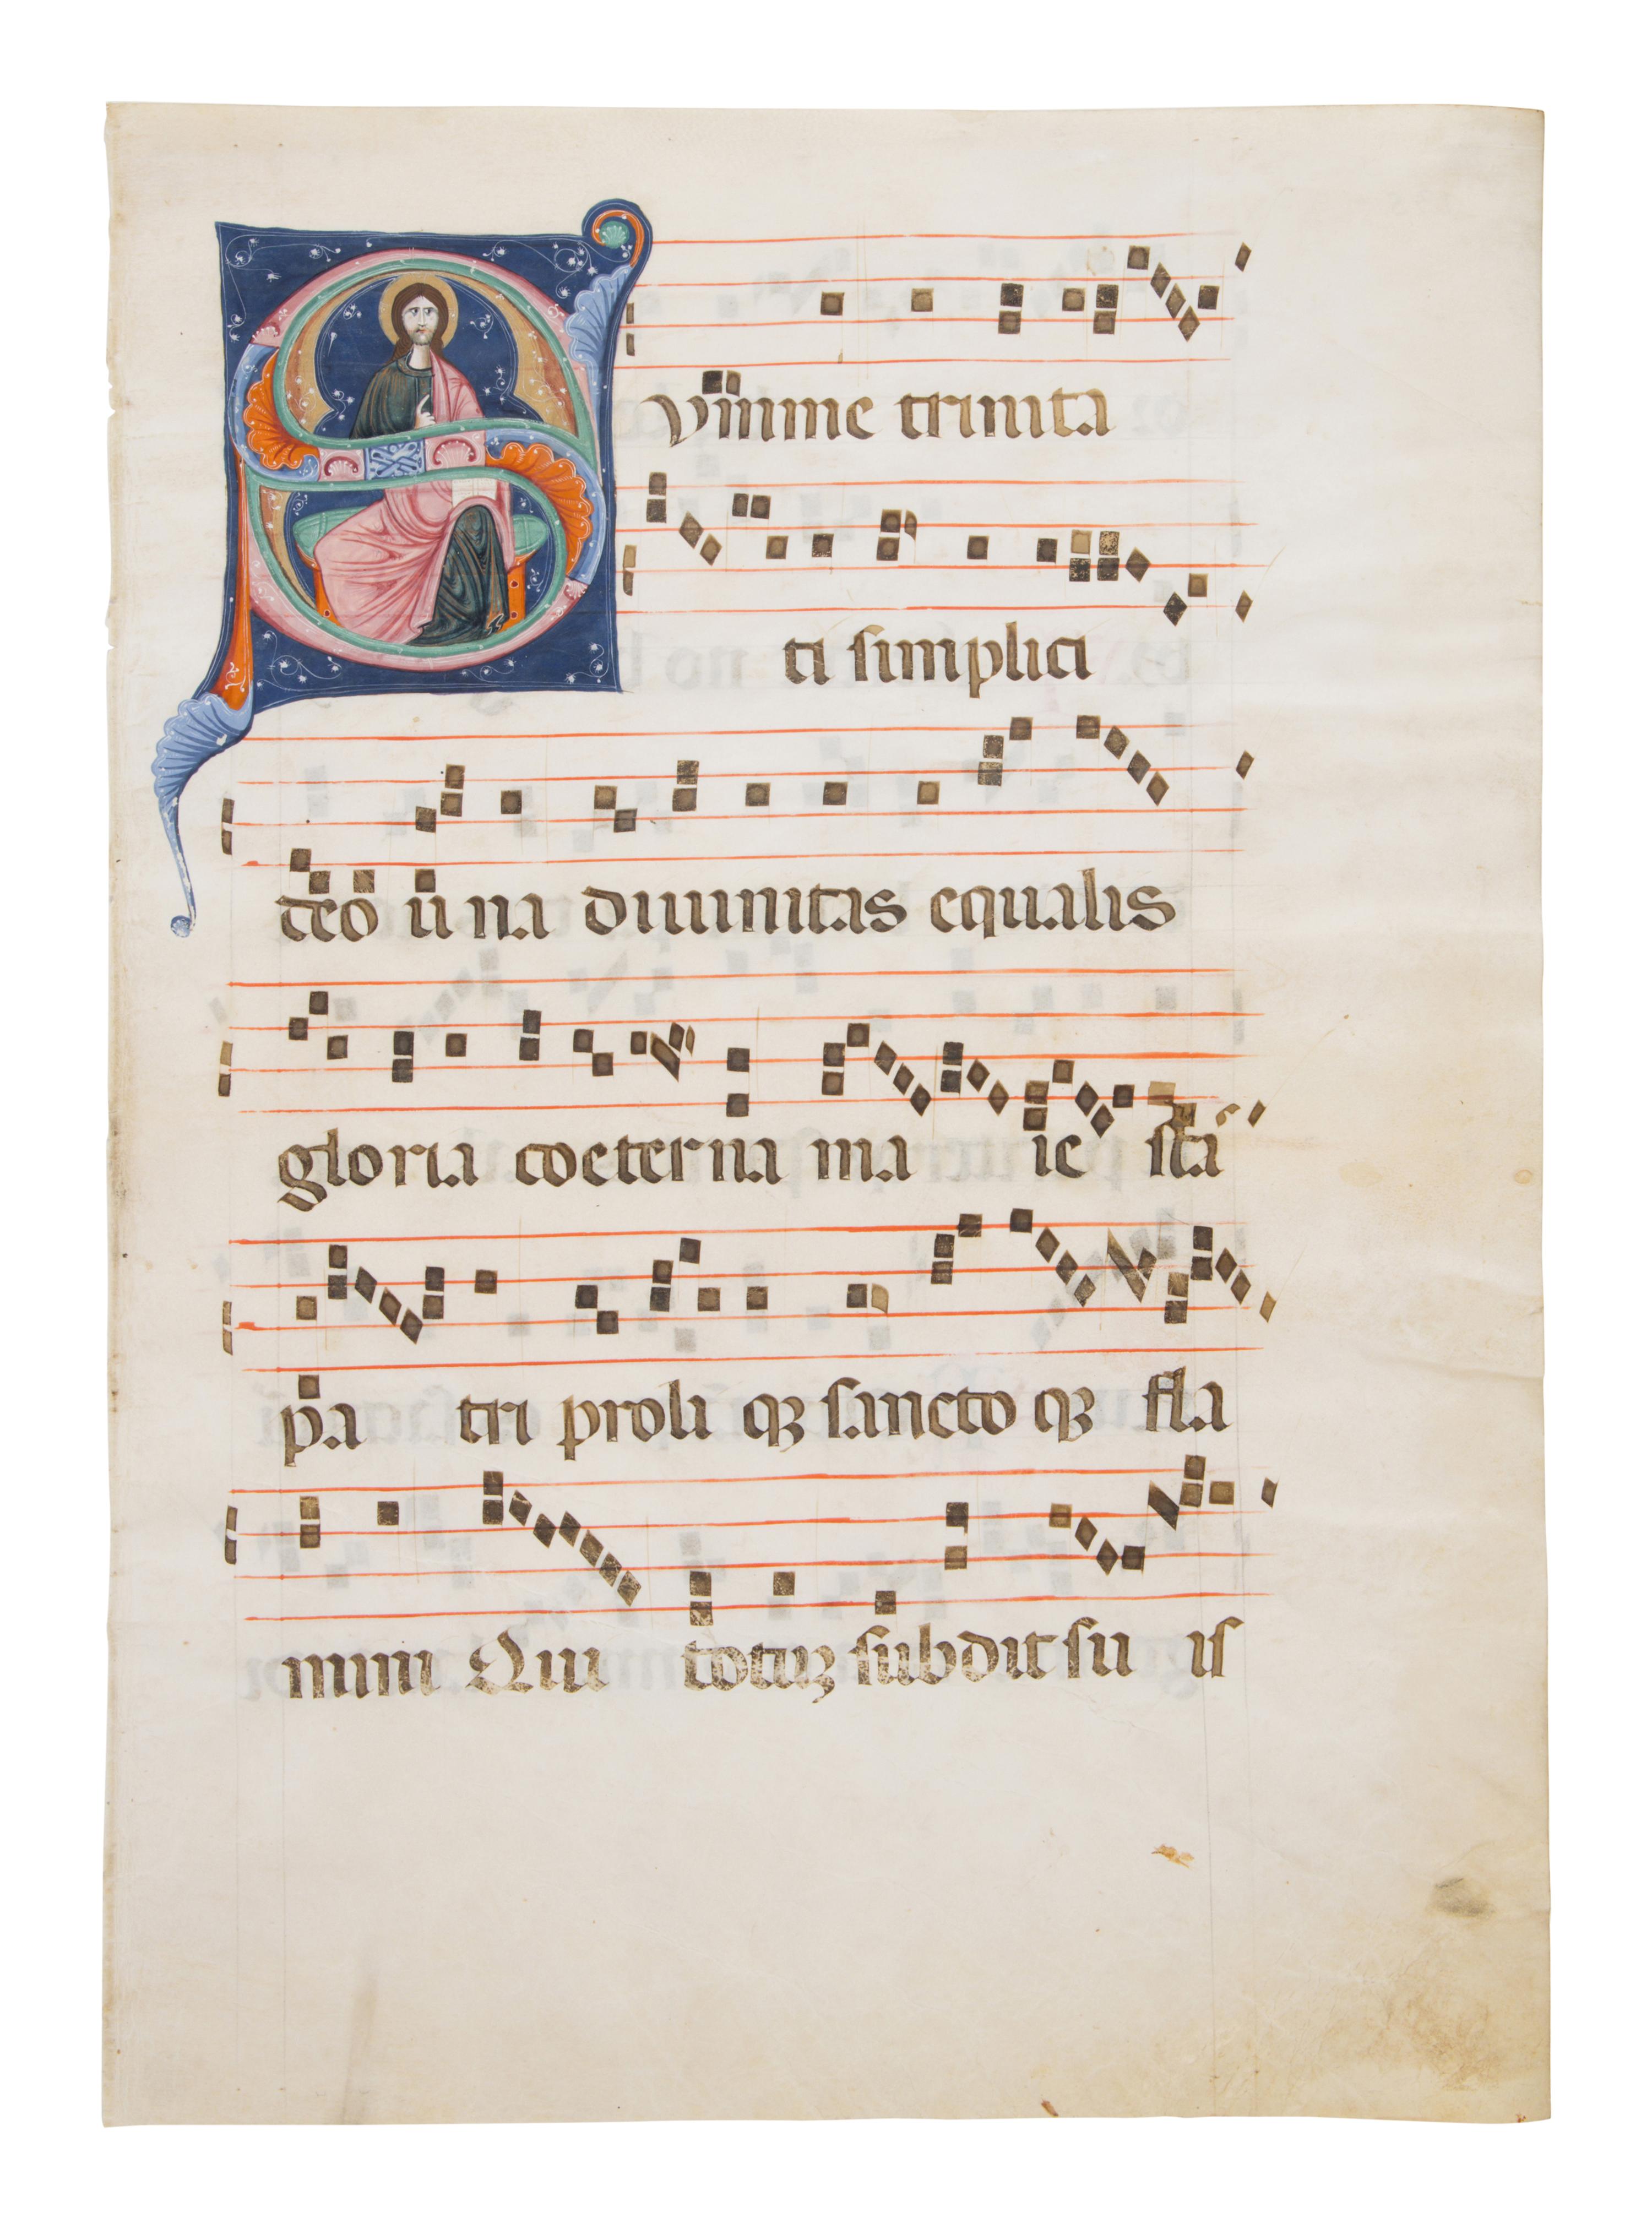 Summe trinita
ti simplici
deo una diuinitas equalis
gloria coeterna ma ie sta
pa tri proli qꝫ sancto qꝫ fla
mini Qui totuꝫ subdit su is